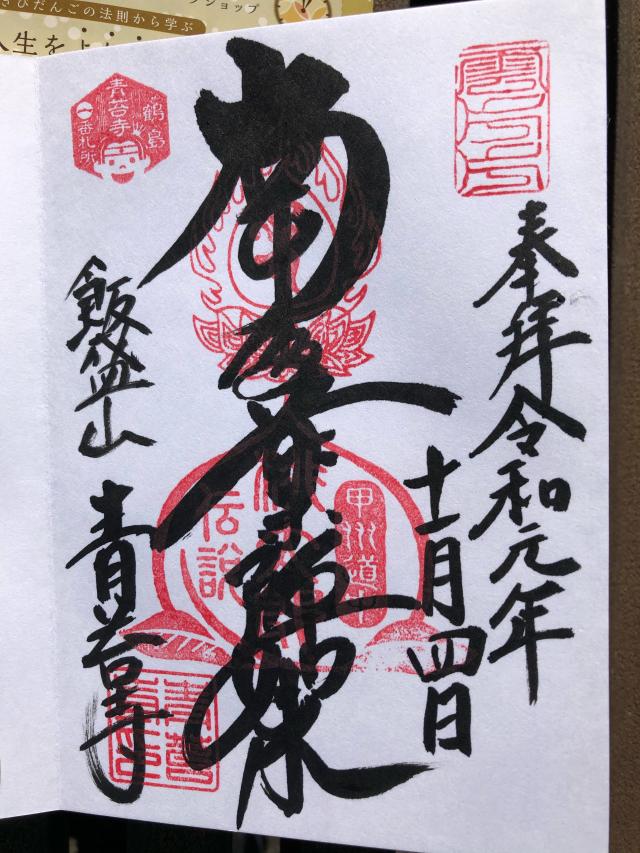 びだんごの法則から学ぶ
クショップ
人生をよ
奉拝 令和元年
十一月四日
南無薬師如来
甲州道中
伝説
鶴島
青苔寺
一番札所
飯盛山 青苔寺